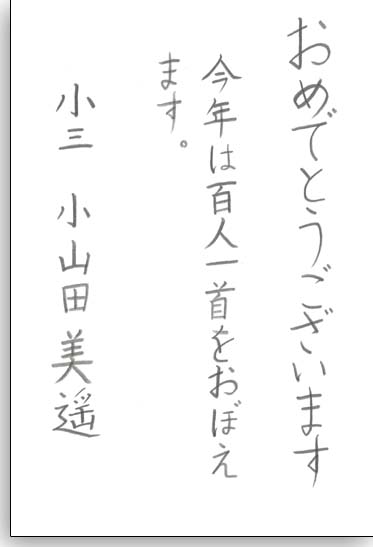 おめでとうございます
今年は百人一首をおぼえ
ます。
小三 小山田美遥